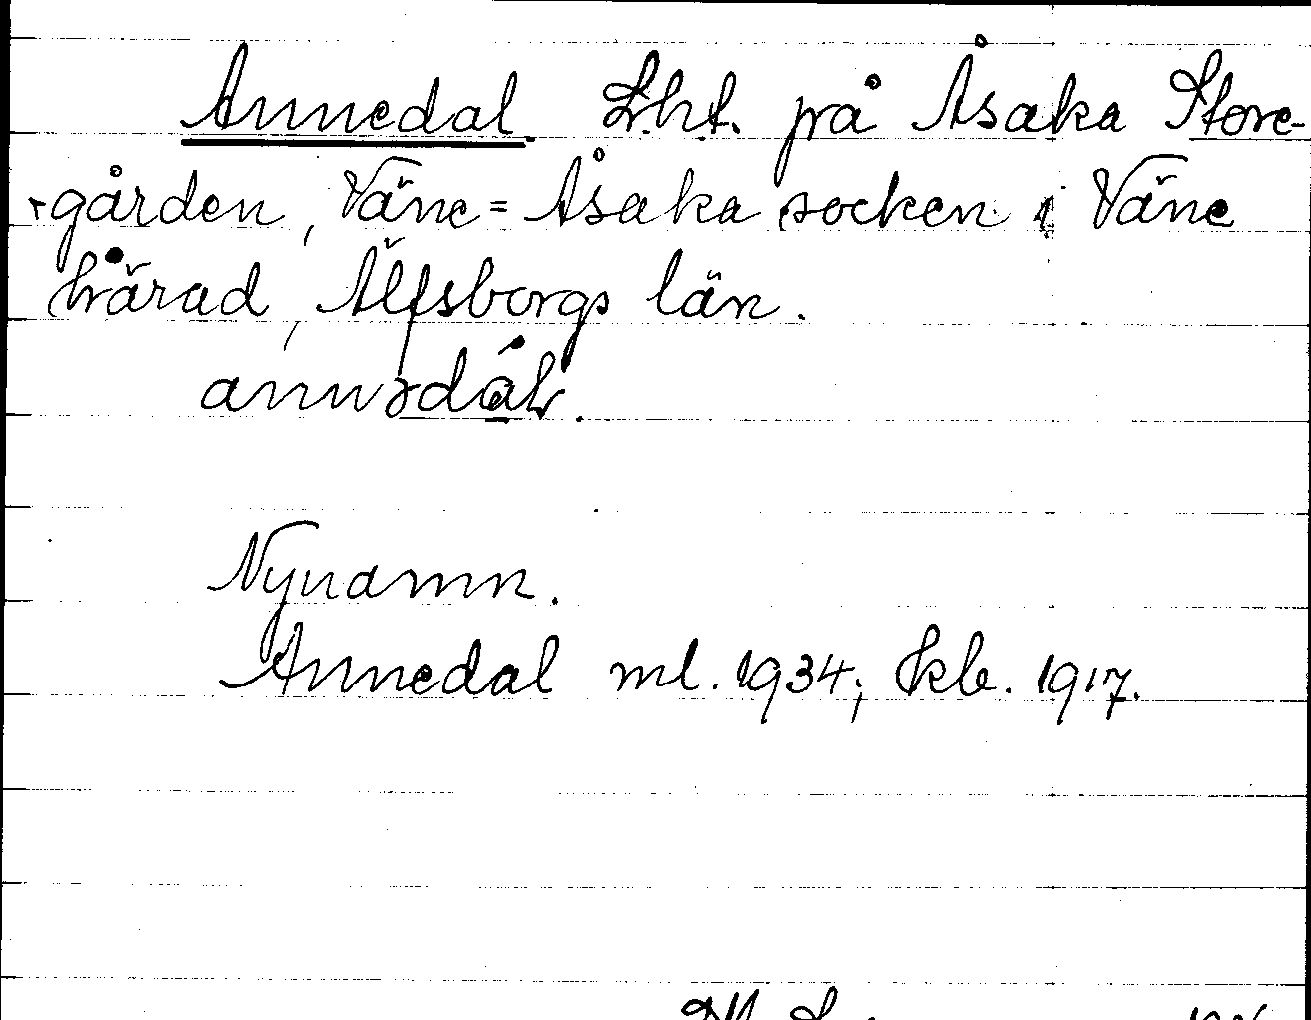 Annedal. Lht. på Åsaka Store-
gården, Väne=Åsaka socken i Väne
härad, Älfsborgs län.
Nynamn.
Annedal ml. 1934; kb. 1917.